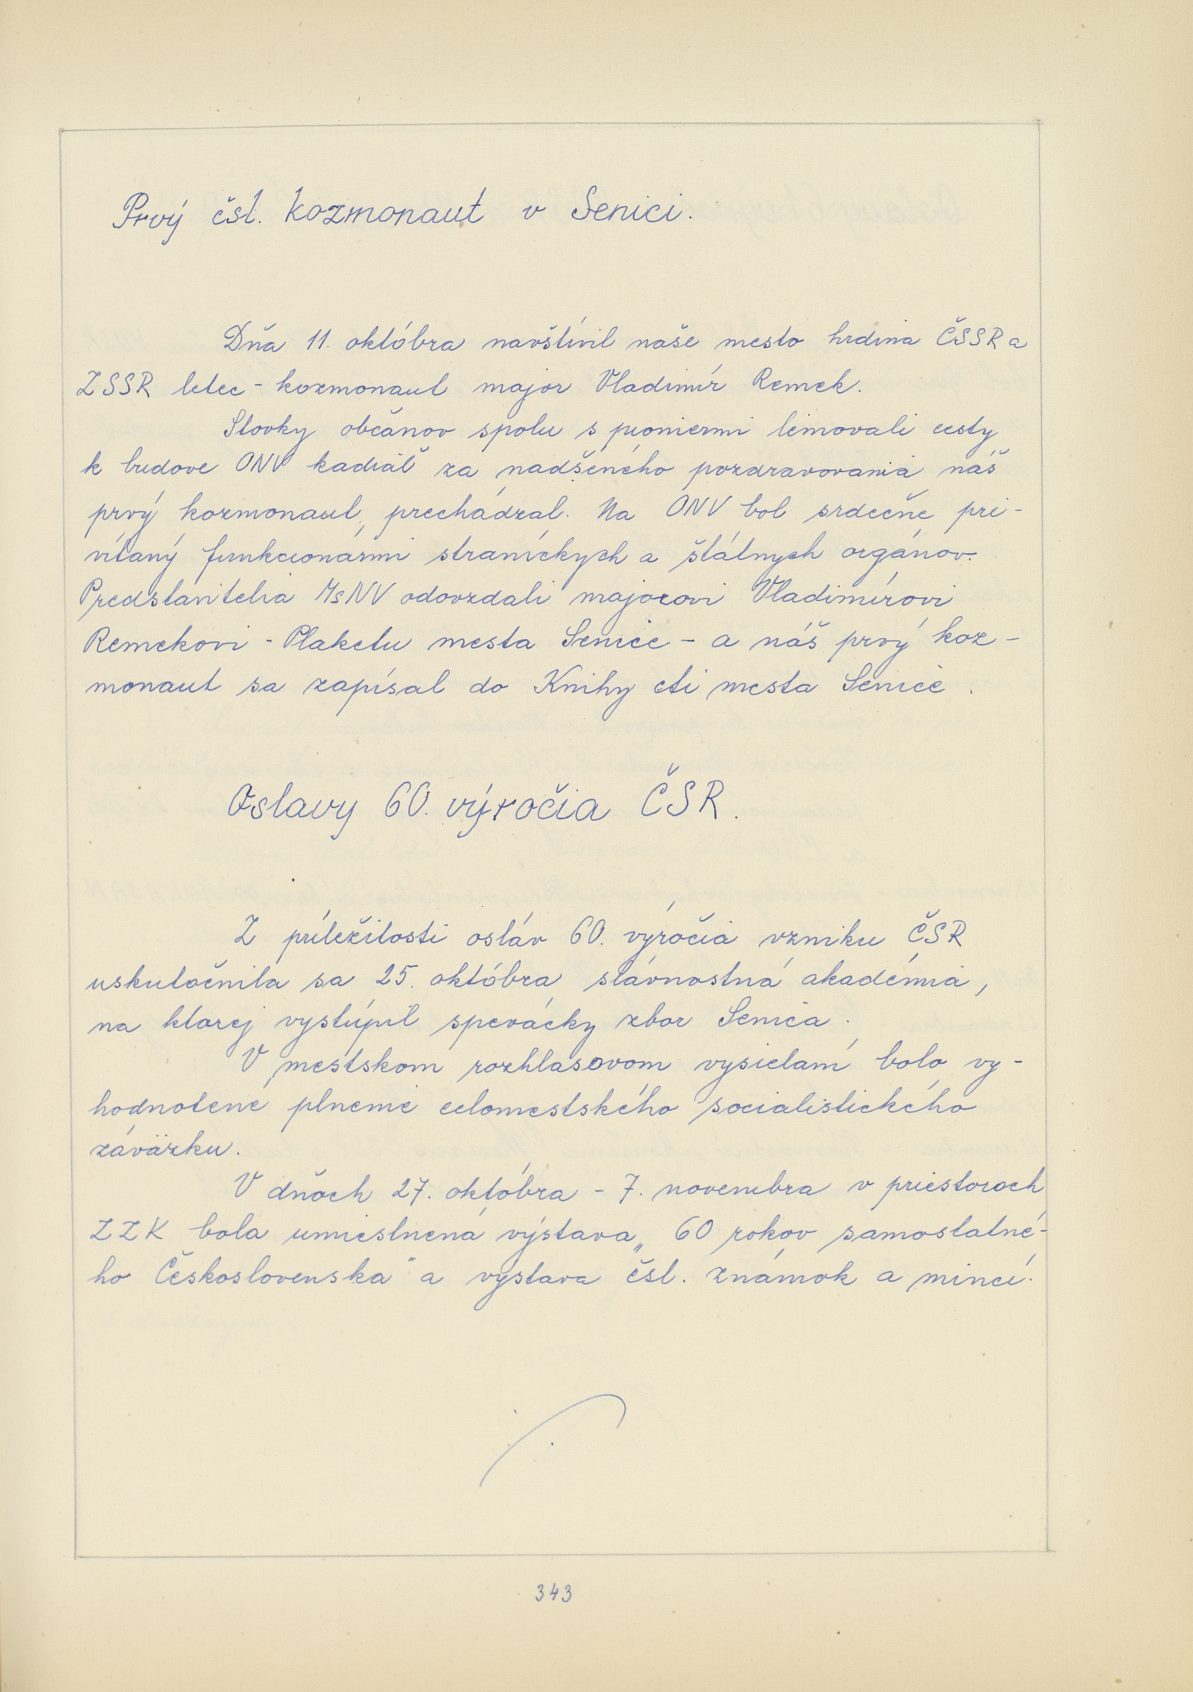 Prvý čsl. kozmonaut v Senici.
Dňa 11. októbra navštívil naše mesto hrdina ČSSR a
ZSSR letec - kozmonaut major Vladimír Remek.
Stovky občanov spolu s pioniermi lemovali cesty
k budove ONV kadiaľ za nadšeného pozdravovania náš
prvý kozmonaut prechádzal. Na ONV bol srdečne pri-
vítaný funkcionármi straníckych a štátnych orgánov.
Predstavitelia MsNV odovzdali majorovi Vladimírovi
Remekovi - Plaketu mesta Senice - a náš prvý koz-
monaut sa zapísal do Knihy cti mesta Senice.
Oslavy 60. výročia ČSR.
Z príležitosti osláv 60. výročia vzniku ČSR
uskutočnila sa 25. októbra slávnostná akadémia,
na ktorej vystúpil spevácky zbor Senica.
V mestskom rozhlasovom vysielaní bolo vy-
hodnotené plnenie celomestského socialistického
záväzku.
V dňoch 27. októbra - 7. novembra v priestoroch
ZZK bola umiestnená výstava „60 rokov samostatné-
ho Československa" a výstava čsl. známok a mincí.
343